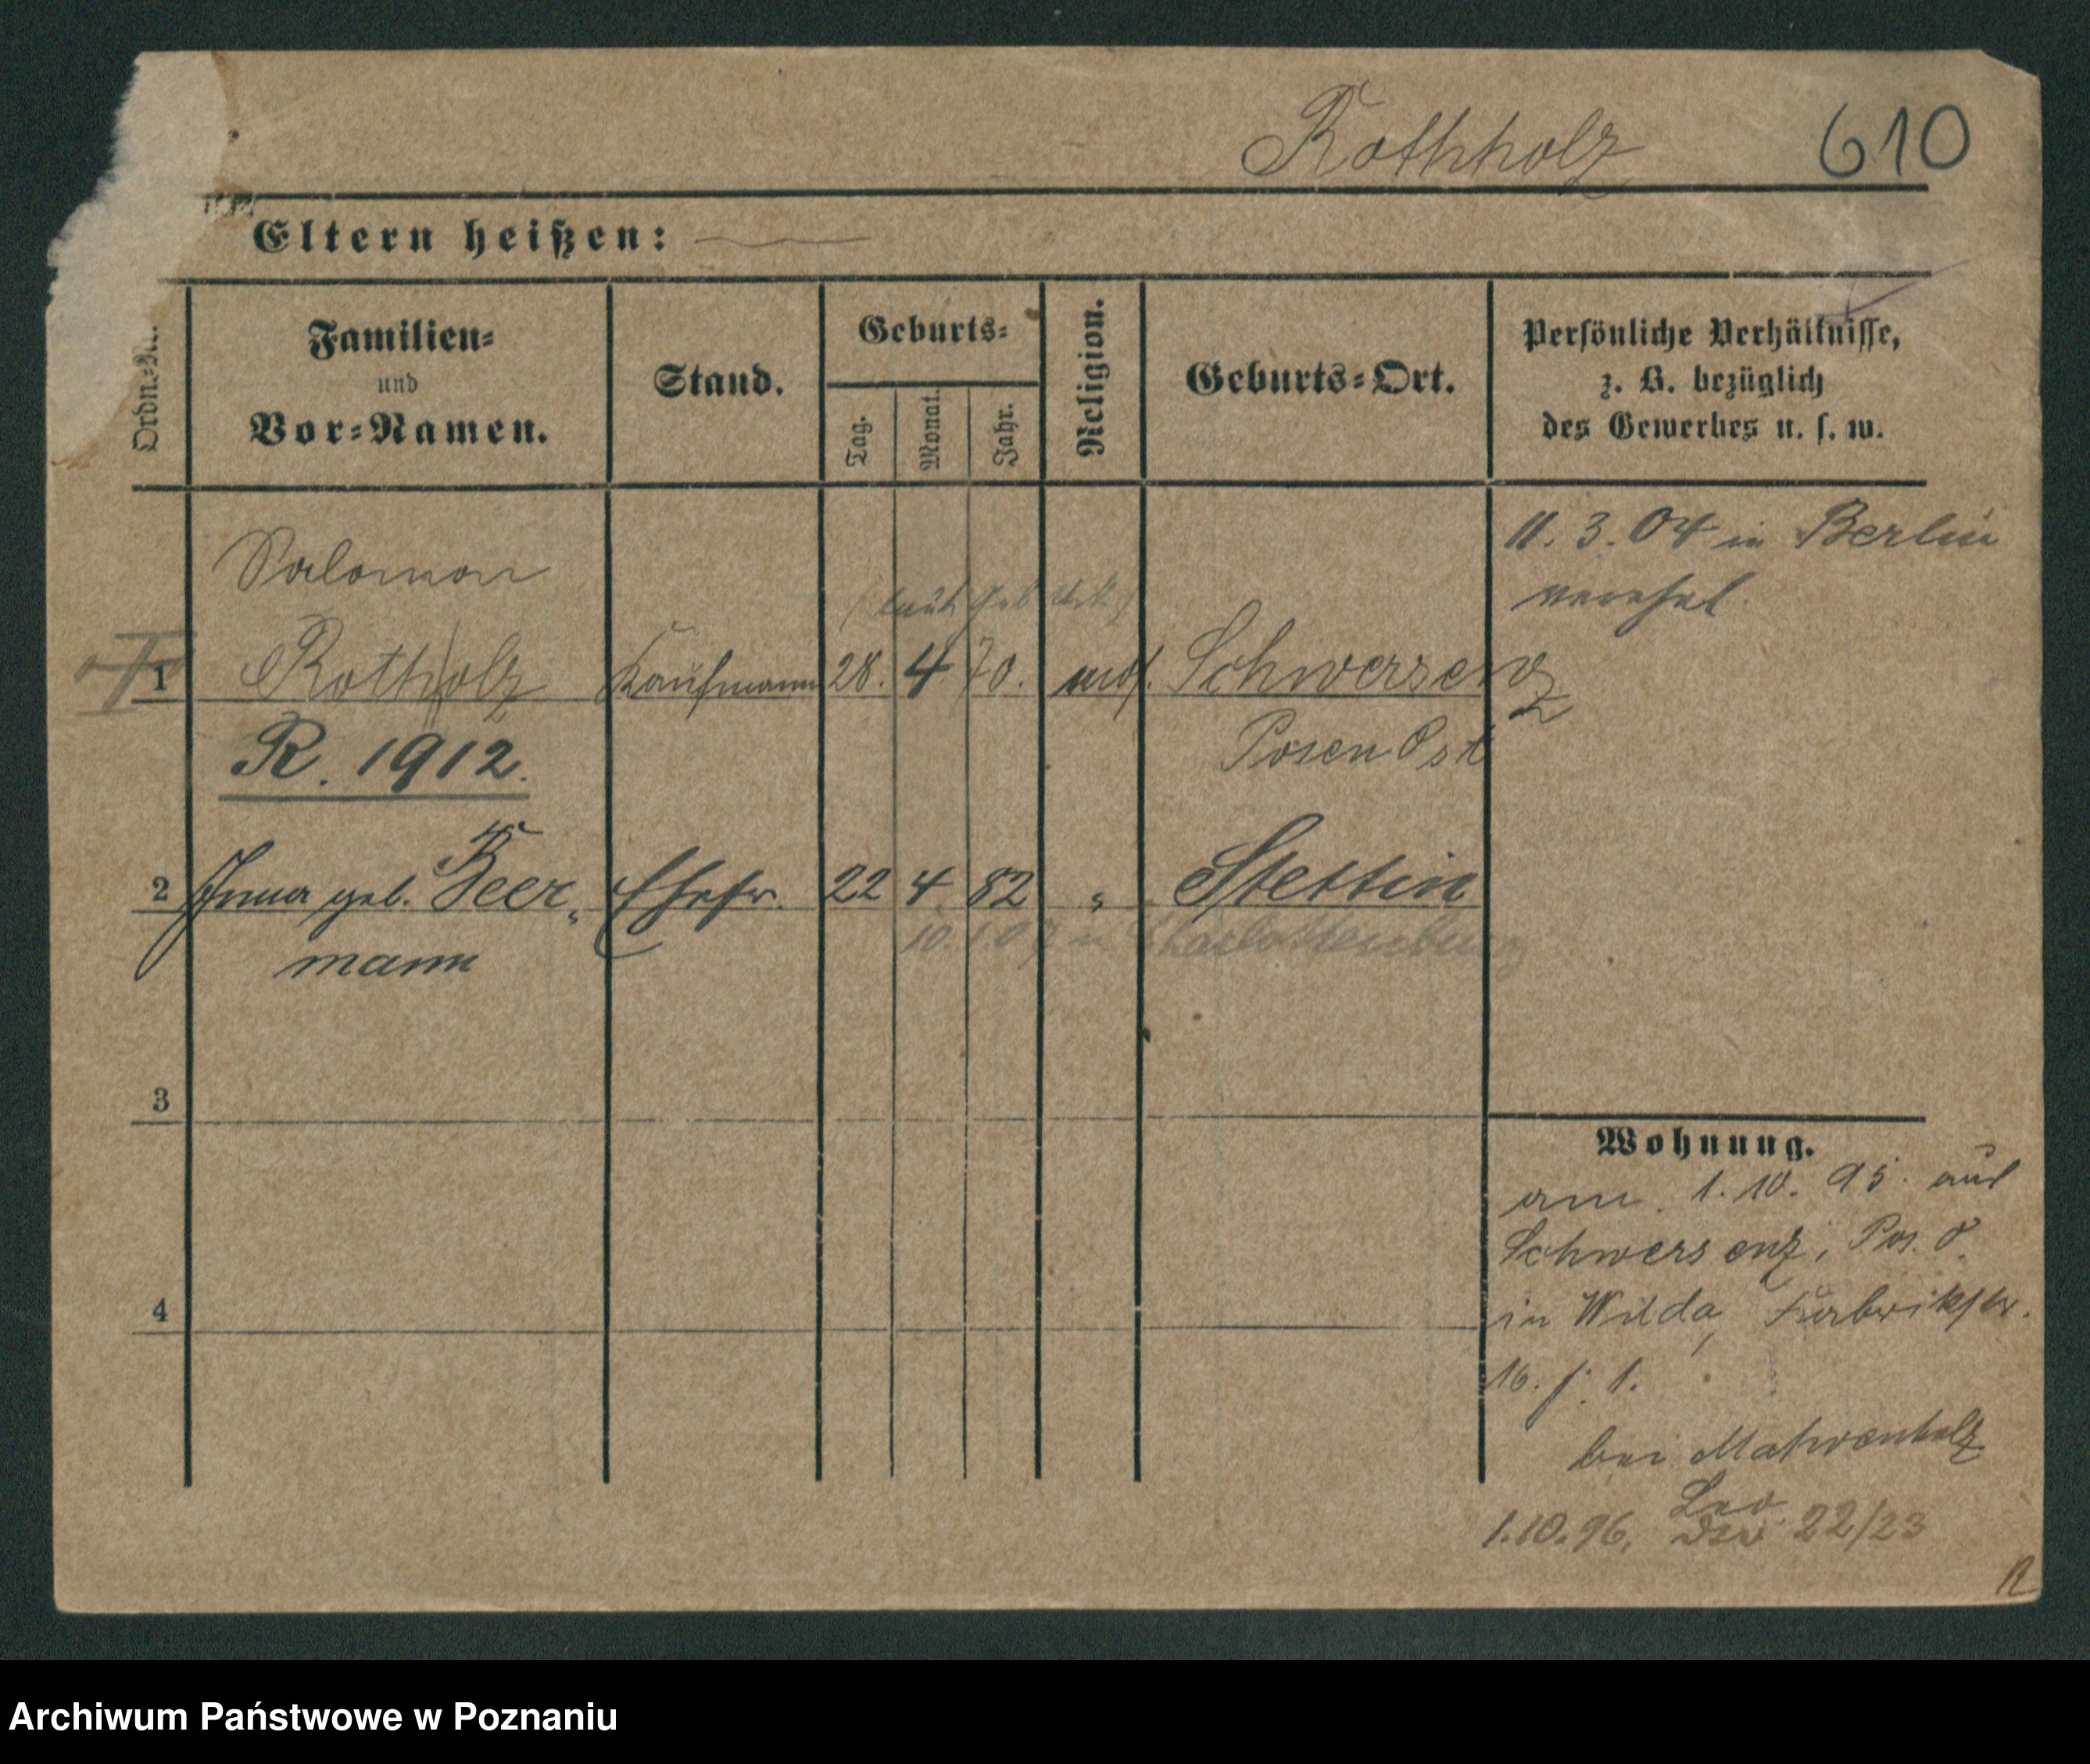 Rothholz 610
Eltern heißen:
Ordn.=N.
Familien=
und
Vor=Namen.
Stand.
Geburts=
Tag.
Monat.
Jahr.
Religion.
Geburts=Ort.
Persönliche Verhältnisse,
z. B. bezüglich
des Gewerbes u. s. w.
11. 3. 04 in Berlin
verehel.
Salomon
(laut Geb Urk)
1 Rothholz Kaufmann 28. 4 70. mos. Schwersenz
R. 1912. Posen Ost
2 Irma geb. Beer= Ehefr. 22 4 82 " Stettin
mann
10. 1. 07 n Charlottenburg
3
4
Wohnung.
am 1. 10. 95. aus
Schwersenz, Pos. O.
in Wilda, Fabrikstr.
16. 1.
bei
1.10.96. 22/23
R
Archiwum Państwowe w Poznaniu